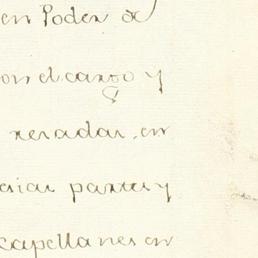 en Poder de
on el cargo y
neradas, en
esias partes y
capellanes en